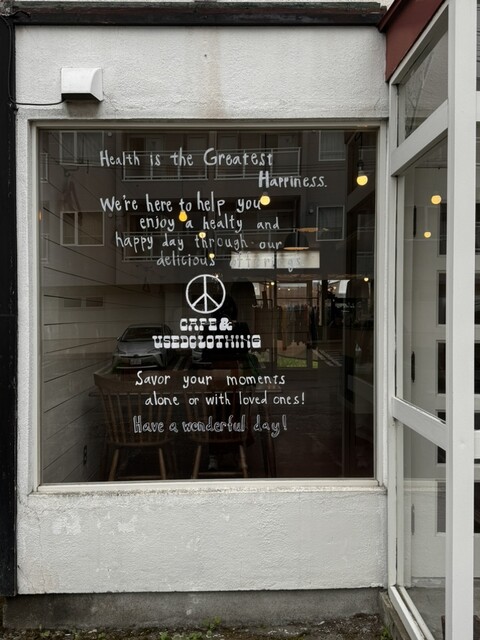 Health is the Greatest
Happiness.
We're here to help you
enjoy a healty and
happy day through our
delicious
CAFE&
USEDCLOTHING
Savor your moments
alone or with loved ones!
Have a wonderful day!